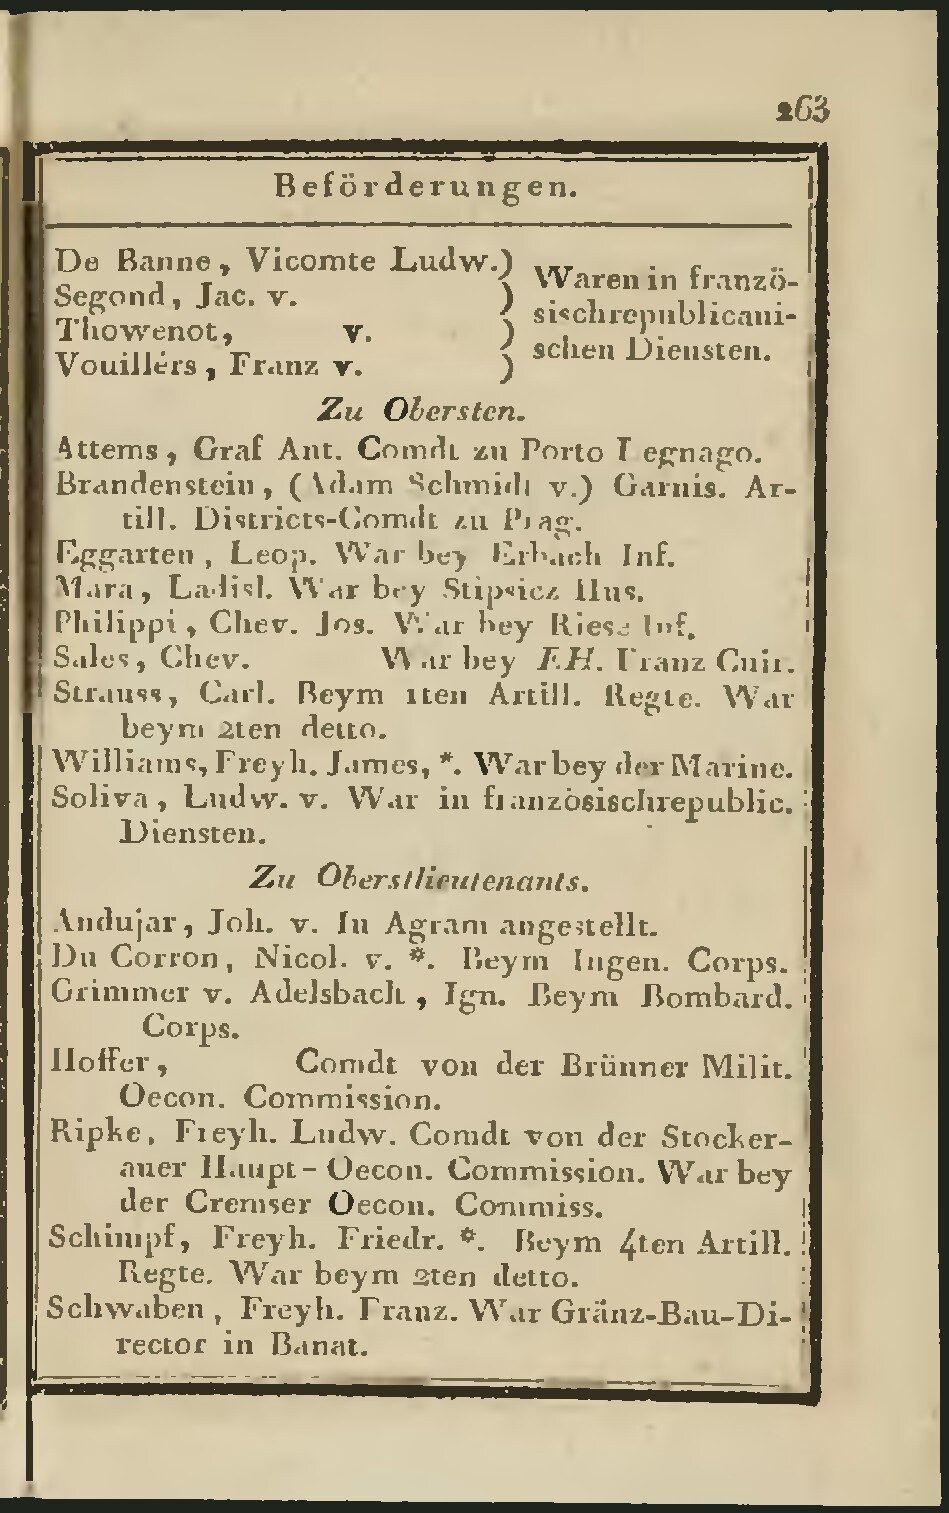 263
Beförderungen.
De Banne, Vicomte Ludw.)
Segond, Jac. v. )
Thowenot, v. )
Vouillérs, Franz v. )
Waren in franzö-
sischrepublicani-
schen Diensten.
Zu Obersten.
Attems, Graf Ant. Comdt zu Porto Legnago.
Brandenstein, (Adam Schmidt v.) Garnis. Ar-
till. Districts-Comdt zu Prag.
Eggarten, Leop. War bey Erbach Inf.
Mara, Ladisl. War bey Stipsicz Hus.
Philippi, Chev. Jos. War bey Riese Inf.
Sales, Chev. War bey E.H. Franz Cuir.
Strauss, Carl. Beym 1ten Artill. Regte. War
beym 2ten detto.
Williams, Freyh. James, *. War bey der Marine.
Soliva, Ludw. v. War in französischrepublic.
Diensten.
Zu Oberstlieutenants.
Andujar, Joh. v. In Agram angestellt.
Du Corron, Nicol. v. *. Beym Ingen. Corps.
Grimmer v. Adelsbach, Ign. Beym Bombard.
Corps.
Hoffer, Comdt von der Brünner Milit.
Oecon. Commission.
Ripke, Freyh. Ludw. Comdt von der Stocker-
auer Haupt-Oecon. Commission. War bey
der Cremser Oecon. Commiss.
Schimpf, Freyh. Friedr. *. Beym 4ten Artill.
Regte. War beym 2ten detto.
Schwaben, Freyh. Franz. War Gränz-Bau-Di-
rector in Banat.